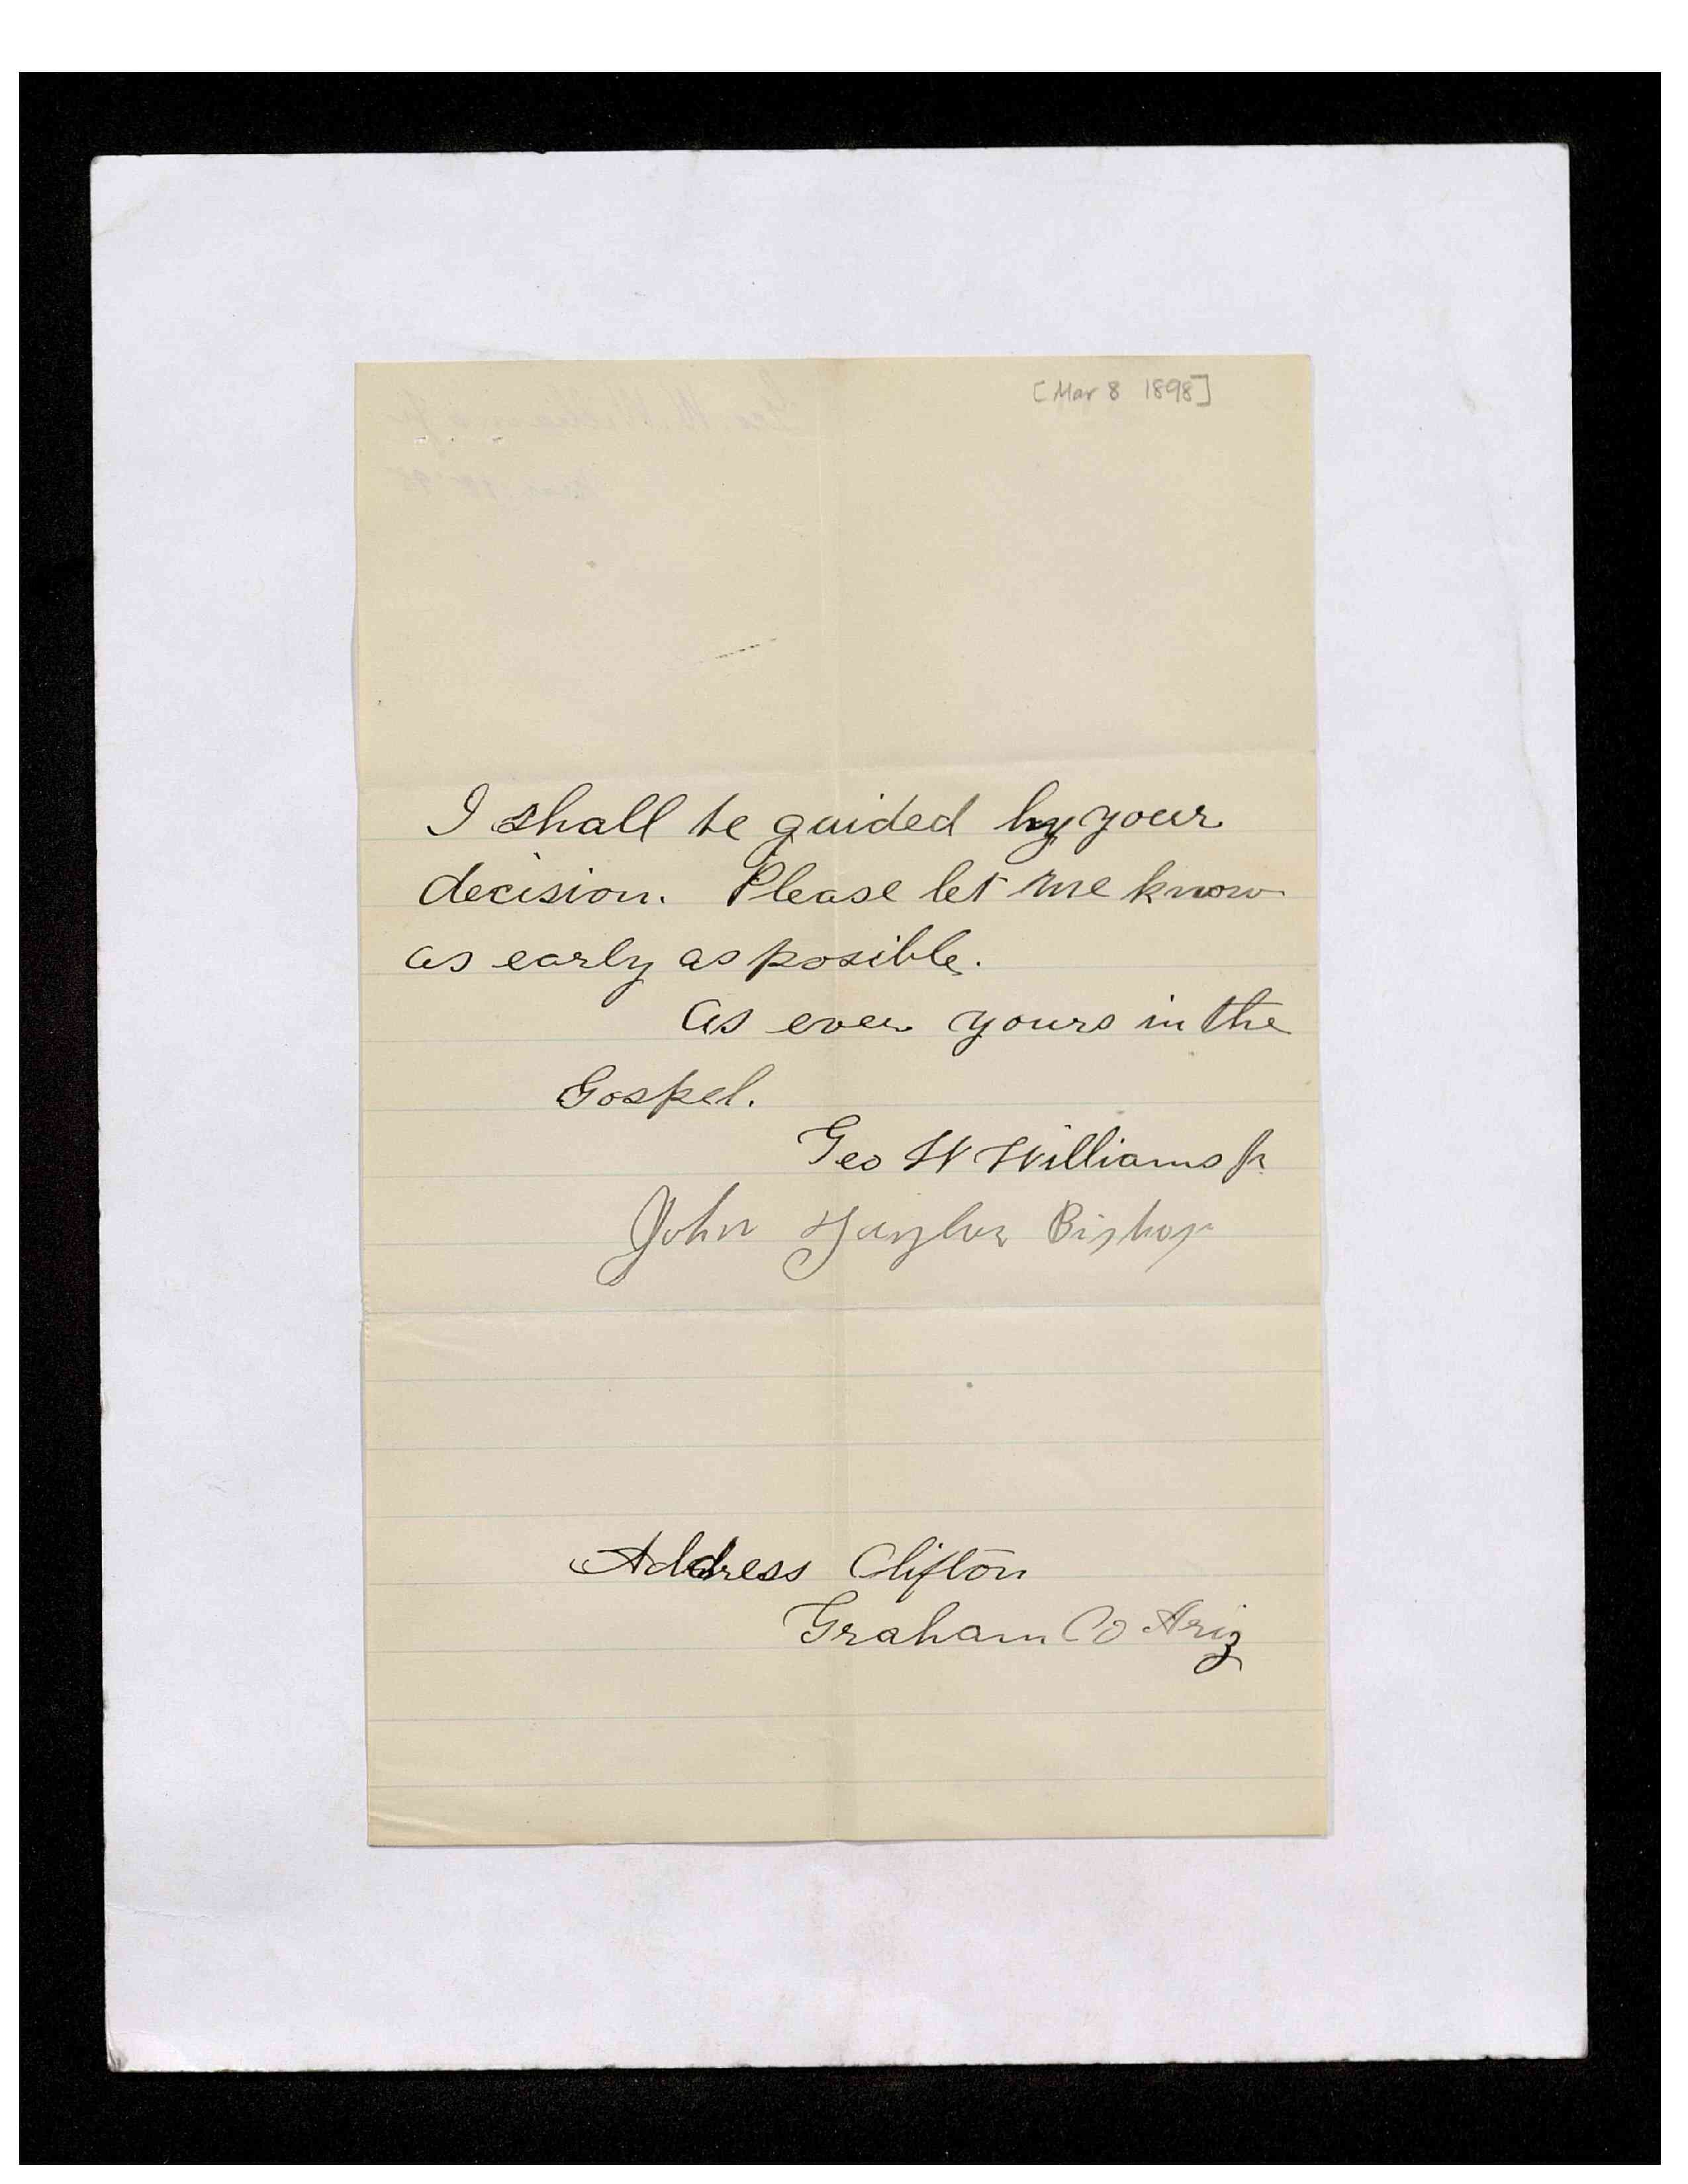 [Mar 8 1898]
I shall be guided by your
decision. Please let me know
as early as posible.
As ever yours in the
Gospel.
Geo W Williams Jr
John Taylor Bishop
Address Clifton
Graham Co Ariz